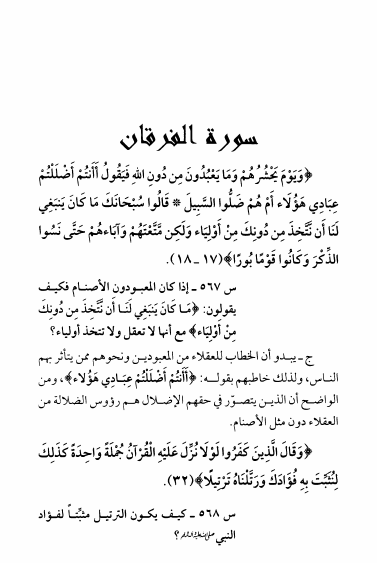 سورة الفرقان
﴿وَيَوْمَ يَحْشُرُهُمْ وَمَا يَعْبُدُونَ مِن دُونِ اللهِ فَيَقُولُ أَأَنتُمْ أَضْلَلْتُمْ
عِبَادِي هَؤُلَاء أَمْ هُمْ ضَلُّوا السَّبِيلَ * قَالُوا سُبْحَانَكَ مَا كَانَ يَنبَغِي
لَنَا أَن نَّتَّخِذَ مِن دُونِكَ مِنْ أَوْلِيَاء وَلَكِن مَّتَّعْتَهُمْ وَآبَاءهُمْ حَتَّى نَسُوا
الذِّكْرَ وَكَانُوا قَوْمًا بُورًا﴾(١٧ - ١٨).
س ٥٦٧ ـ إذا كان المعبودون الأصنام فكيف
يقولون: ﴿مَا كَانَ يَنبَغِي لَنَا أَن نَّتَّخِذَ مِن دُونِكَ
مِنْ أَوْلِيَاء﴾ مع أنها لا تعقل ولا تتخذ أولياء؟
ج ـ يبدو أن الخطاب للعقلاء من المعبودين ونحوهم ممن يتأثر بهم
الناس، ولذلك خاطبهم بقوله: ﴿أَأَنتُمْ أَضْلَلْتُمْ عِبَادِي هَؤُلَاء﴾، ومن
الواضح أن الذين يتصوّر في حقهم الإضلال هم رؤوس الضلالة من
العقلاء دون مثل الأصنام.
﴿وَقَالَ الَّذِينَ كَفَرُوا لَوْلَا نُزِّلَ عَلَيْهِ الْقُرْآنُ جُمْلَةً وَاحِدَةً كَذَلِكَ
لِنُثَبِّتَ بِهِ فُؤَادَكَ وَرَتَّلْنَاهُ تَرْتِيلًا﴾(٣٢).
س ٥٦٨ ـ كيف يكون الترتيل مثبِّتاً لفؤاد
النبي ؟